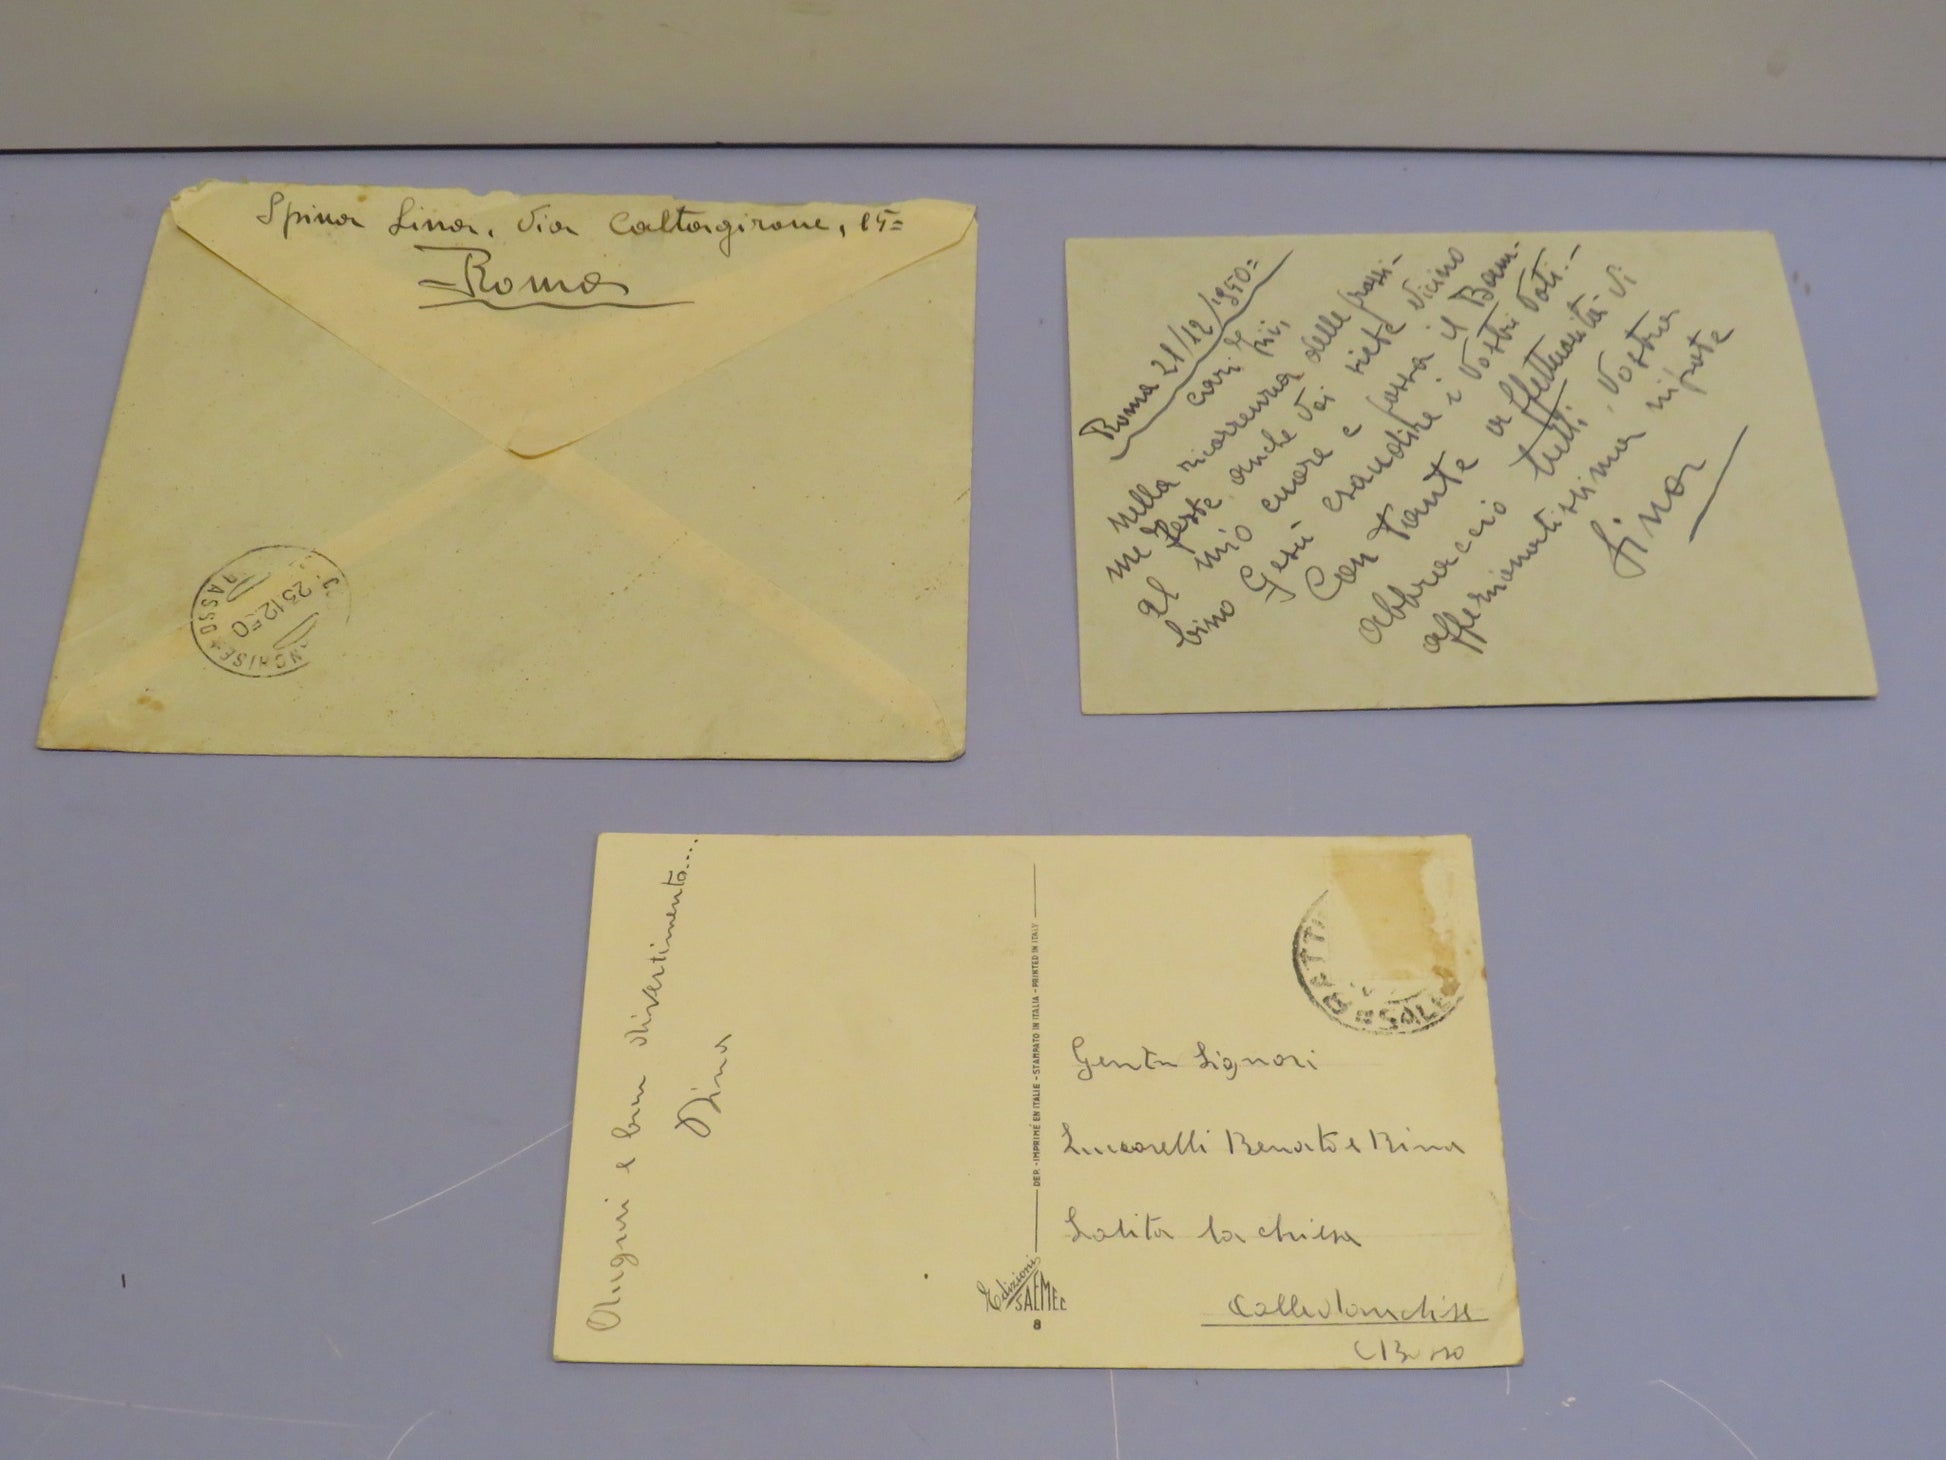 Spina Lina, Via Caltagirone, 15=
Roma
23.12.50
Roma 21/12/1950=
cari zii,
nella ricorrenza delle prossi-
me feste anche voi siete vicino
al mio cuore e possa il Bam-
bino Gesù esaudire i vostri voti.-
Con tante affettuosità vi
abbraccio tutti, vostra
affezionatissima nipote
Lina
Auguri e buon divertimento....
Dina
DEP. - IMPRIMÉ EN ITALIE - STAMPATO IN ITALIA - PRINTED IN ITALY
Edizioni
SAEMEC
8
Gent.mi Signori
Luccarelli Renato e Rina
Salita la chiesa
Colledanchise